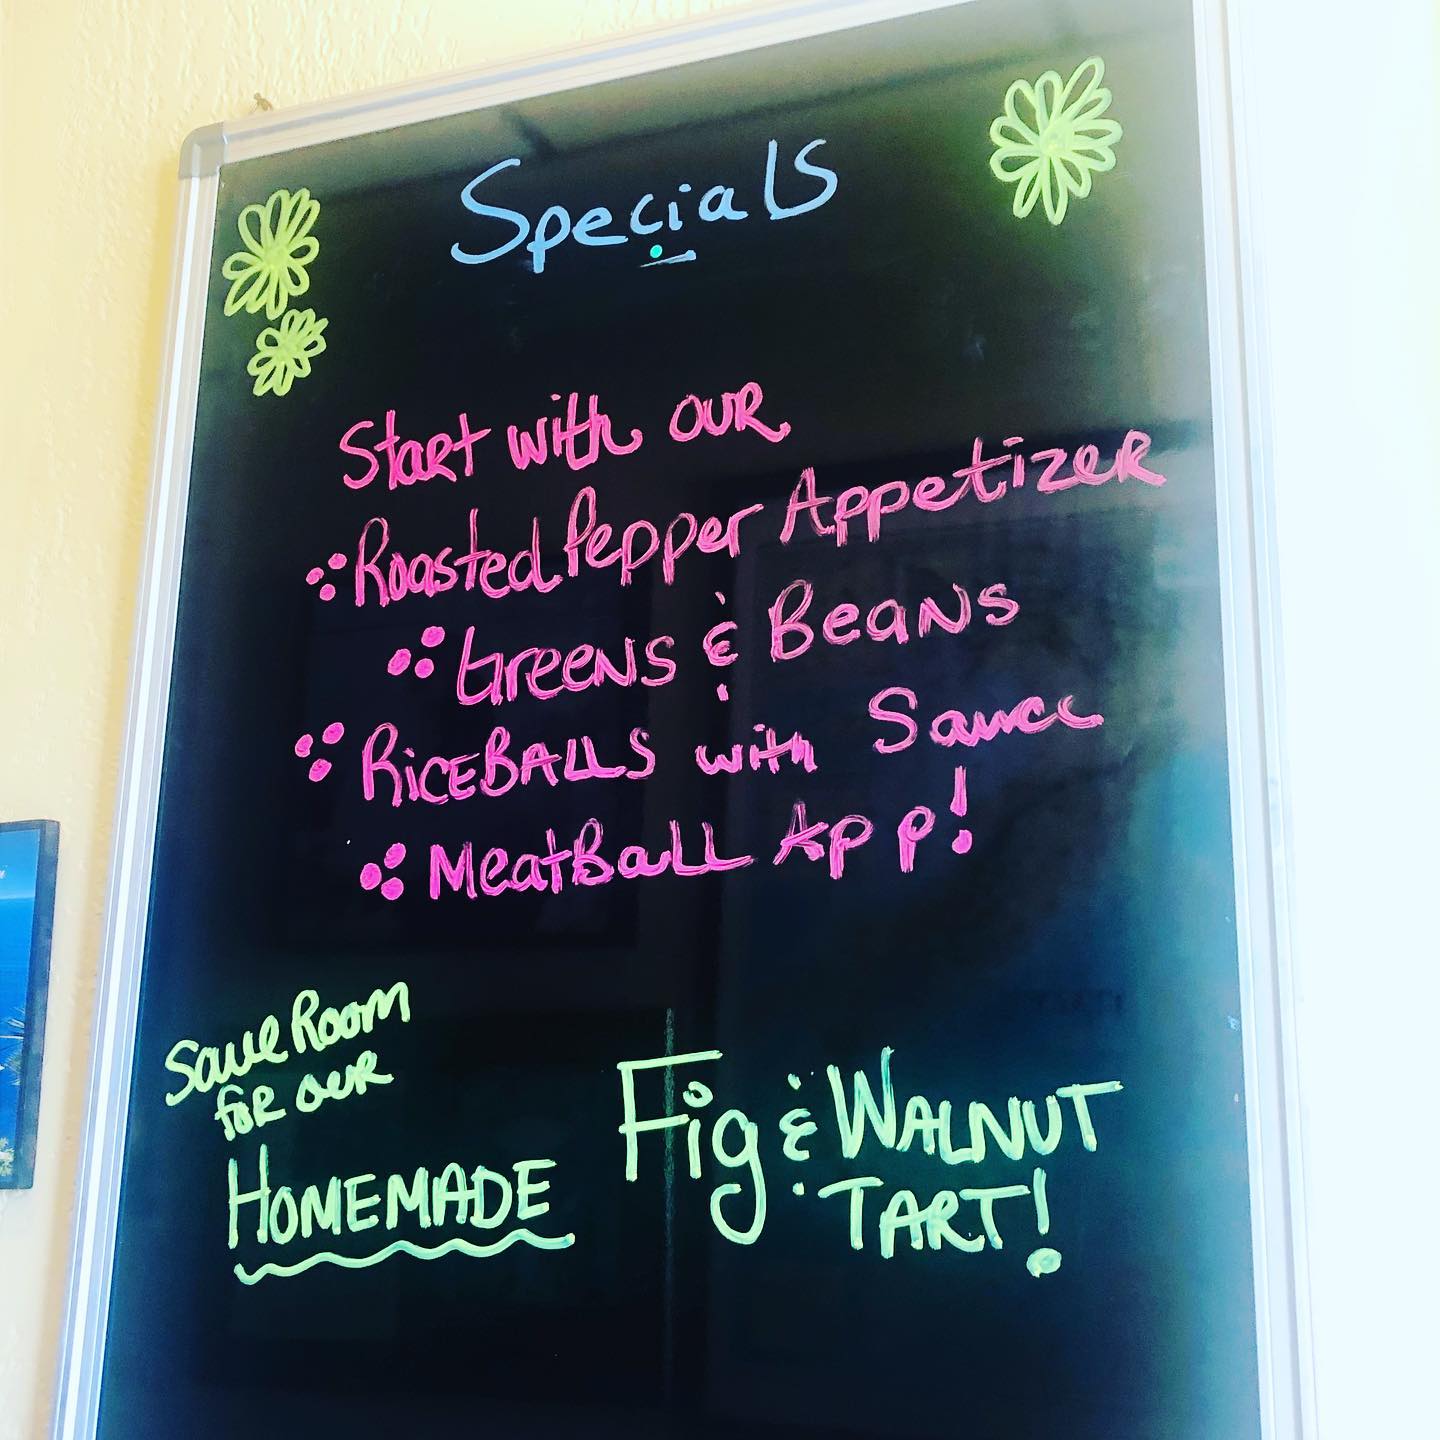 Specials
Start with our
Roasted Pepper Appetizer
Greens & Beans
RiceBalls with Sauce
MeatBall App!
Save Room
for our
HOMEMADE
Fig & WALNUT
TART!